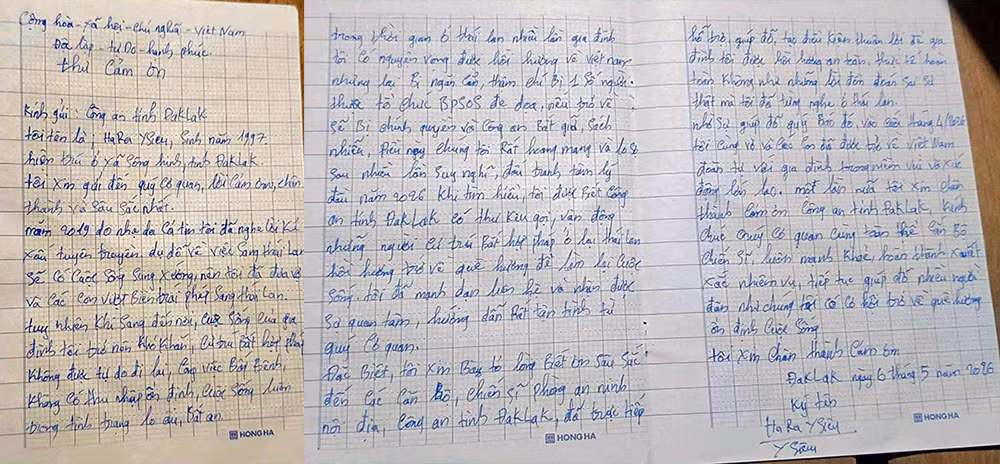 Cộng hòa - xã hội - chủ nghĩa - Việt Nam
Độc lập - tự Do - hạnh phúc.
thư Cảm ơn
Kính gửi: Công an tỉnh ĐakLak
tôi tên là, HaRa YSiêu, Sinh năm 1997.
hiện trú ở xã Sông hinh, tỉnh ĐakLak
tôi xin gửi đến quý cơ quan, lời cảm ơn, chân
thành và sâu sắc nhất.
năm 2019 do nhẹ dạ cả tin tôi đã nghe lời kẻ
xấu tuyên truyền dụ dỗ về việc sang thái Lan
sẽ có cuộc sống sung sướng, nên tôi đã đưa vợ
và các con vượt Biên trái phép sang thái Lan.
tuy nhiên khi sang đến nơi, cuộc sống của gia
đình tôi trở nên khó khăn, cư trú bất hợp pháp
không được tự do đi lại, công việc Bấp Bênh,
không có thu nhập ổn định, cuộc sống luôn
trong tình trạng lo âu, Bất an.
HONG HA
trong thời gian ở thái lan nhiều lần gia đình
tôi có nguyện vọng được hồi hương về việt nam
nhưng lại Bị ngăn cản, thậm chí Bị 1 số người.
thuộc tổ chức BPSOS đe dọa, nếu trở về
sẽ Bị chính quyền và Công an Bắt giữ, sách
nhiễu, điều này chúng tôi Rất hoang mang và lo sợ
sau nhiều lần suy nghĩ, đấu tranh tâm lý
đầu năm 2026 khi tìm hiểu, tôi được Biết Công
an tỉnh ĐakLak có thư kêu gọi, vận động
những người cư trú Bất hợp pháp ở lại thái lan
hồi hương trở về quê hương để làm lại cuộc
sống. tôi đã mạnh dạn liên hệ và nhận được
sự quan tâm, hướng dẫn Rất tận tình từ
quý cơ quan.
Đặc Biệt, tôi xin Bày tỏ lòng Biết ơn sâu sắc
đến các cán Bộ, chiến sĩ phòng an ninh
nội địa, Công an tỉnh ĐakLak, đã trực tiếp
HONG HA
hỗ trợ, giúp đỡ, tạo điều kiện thuận lợi để gia
đình tôi được hồi hương an toàn, thực tế hoàn
toàn không như những lời đồn đoán sai sự
thật mà tôi đã từng nghe ở thái lan.
nhờ sự giúp đỡ quý Báu đó, vào đầu tháng 4/2026
tôi cùng vợ và các con đã được trở về việt Nam
đoàn tụ với gia đình trong niềm vui và xúc
động lớn lao. một lần nữa tôi xin chân
thành cảm ơn Công an tỉnh ĐakLak. kính
chúc quý cơ quan cùng toàn thể cán Bộ
chiến sĩ, luôn mạnh khỏe, hoàn thành xuất
sắc nhiệm vụ, tiếp tục giúp đỡ nhiều người
dân như chúng tôi có cơ hội trở về quê hương
ổn định cuộc sống
tôi xin chân thành cảm ơn
ĐakLak ngày 6 tháng 5 năm 2026
Ký tên
HaRa YSiêu
YSiêu
HONG HA